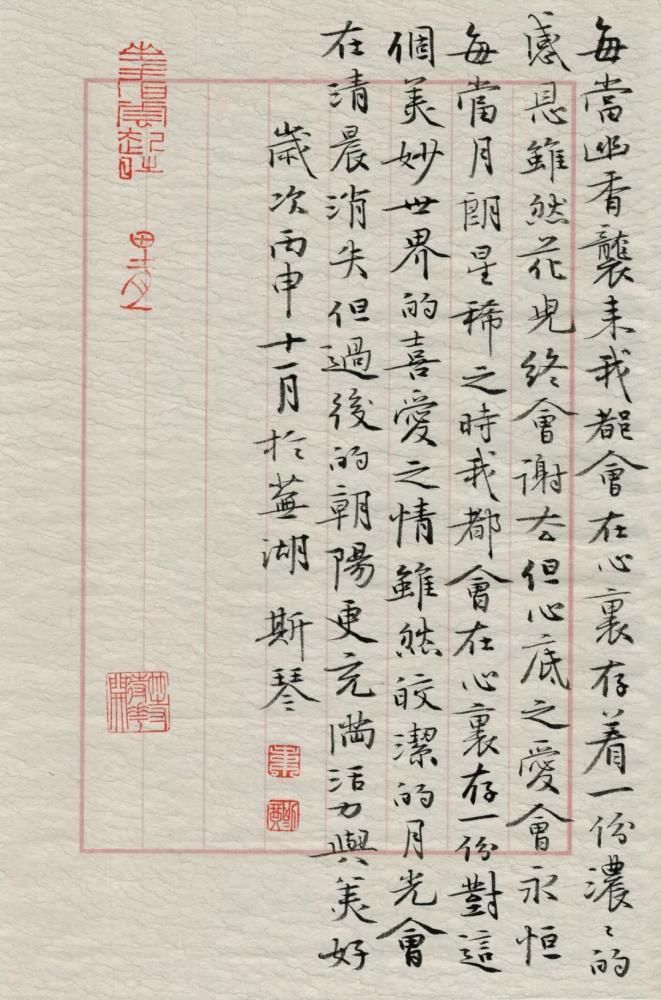 每當幽香襲来我都會在心裏存着一份濃〻的
感恩雖然花児終會謝去但心底之愛會永恒
每當月朗星稀之時我都會在心裏存一份對這
個美妙世界的喜愛之情雖然皎潔的月光會
在清晨消失但過後的朝陽更充滿活力與美好
歲次丙申十一月於蕪湖 斯琴